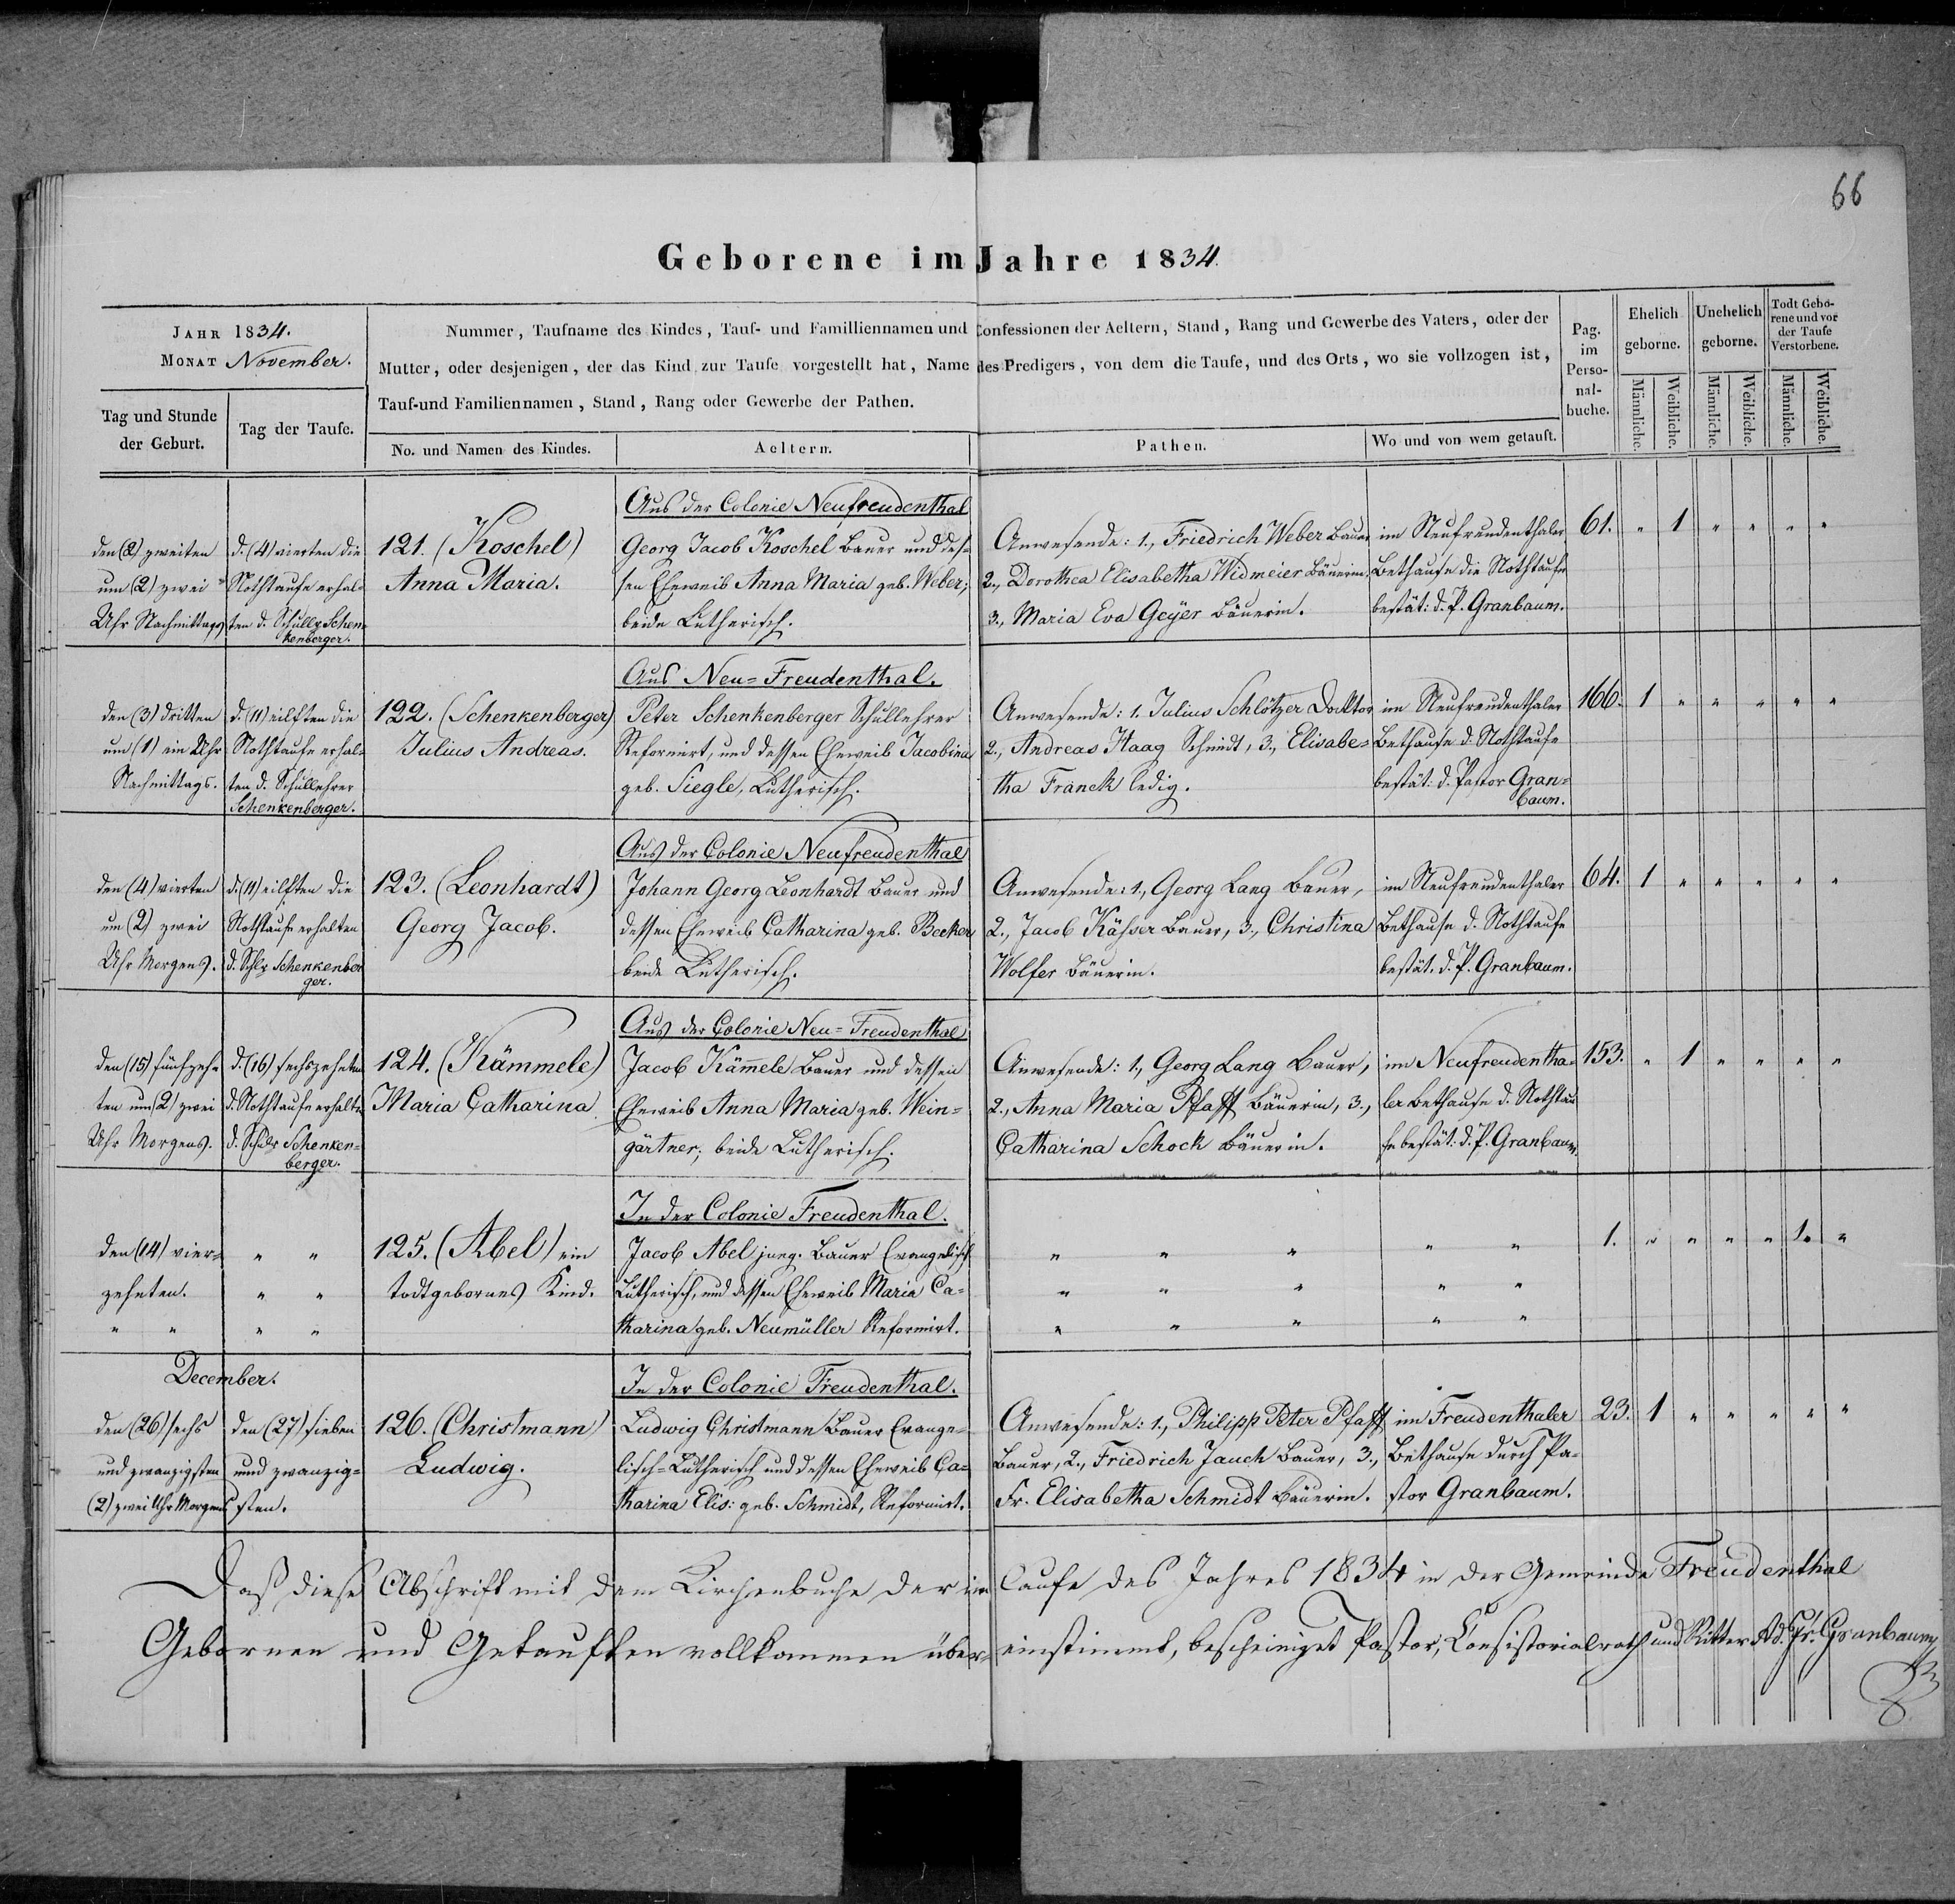 66
Geborene im Jahre 1834.
JAHR 1834.
MONAT November.
Nummer, Taufname des Kindes, Tauf- und Familliennamen und Confessionen der Aeltern, Stand, Rang und Gewerbe des Vaters, oder der
Mutter, oder desjenigen, der das Kind zur Taufe vorgestellt hat, Name des Predigers, von dem die Taufe, und des Orts, wo sie vollzogen ist,
Tauf-und Familiennamen, Stand, Rang oder Gewerbe der Pathen.
Pag.
im
Perso-
nal-
buche.
Ehelich
geborne.
Unehelich
geborne.
Todt Gebo-
rene und vor
der Taufe
Verstorbene.
Männliche.
Weibliche.
Männliche.
Weibliche.
Männliche.
Weibliche.
Tag und Stunde
der Geburt.
Tag der Taufe.
No. und Namen des Kindes.
Aeltern.
Pathen.
Wo und von wem getauft.
den (2) zweiten
um (2) zwei
Uhr Nachmittags
d. (4) vierten die
Nothtaufe erhal-
ten d. Schullr Schen-
kenberger.
121. (Koschel)
Anna Maria.
Aus der Colonie Neufreudenthal
Georg Jacob Koschel Bauer und des-
sen Eheweib Anna Maria geb. Weber,
beide Lutherisch.
Anwesende: 1., Friedrich Weber Bauer
2., Dorothea Elisabetha Widmeier Bäuerin.
3., Maria Eva Geÿer Bäuerin.
im Neufreudenthaler
Bethause die Nothtaufe
bestät: d. P. Granbaum.
61. " 1 " " " "
den (3) dritten
um (1) ein Uhr
Nachmittags.
d. (11) eilften die
Nothtaufe erhal-
ten d. Schullehrer
Schenkenberger.
122. (Schenkenberger)
Julius Andreas.
Aus Neu=Freudenthal.
Peter Schenkenberger Schullehrer
Reformirt, und dessen Eheweib Jacobina
geb. Siegle, Lutherisch.
Anwesende: 1. Julius Schlötzer Docktor
2., Andreas Haag Schmidt, 3., Elisabe=
tha Franck ledig.
im Neufreudenthaler
Bethause d. Nothtaufe
bestät: d. Pastor Gran=
baum.
166. 1 " " " " "
den (4) vierten
um (2) zwei
Uhr Morgens.
d. (11) eilften die
Nothtaufe erhalten
d. Schlr Schenkenber
ger.
123. (Leonhardt)
Georg Jacob.
Aus der Colonie Neufreudenthal
Johann Georg Leonhardt Bauer und
dessen Eheweib Catharina geb. Becker
beide Lutherisch.
Anwesende: 1., Georg Lang Bauer,
2., Jacob Kässer Bauer, 3., Christina
Wolfer Bäuerin.
im Neufreudenthaler
Bethause d. Nothtaufe
bestät. d. P. Granbaum.
64. 1 " " " " "
den (15) fünfzehn
ten um (2) zwei
Uhr Morgens.
d. (16) sechszehnten
d. Nothtaufe erhalten
d. Schulr Schenken=
berger.
124. (Kämmele)
Maria Catharina
Aus der Colonie Neu=Freudenthal
Jacob Käm̄ele Bauer und dessen
Eheweib Anna Maria geb. Wein=
gärtner; beide Lutherisch.
Anwesende: 1., Georg Lang Bauer,
2., Anna Maria Pfaff Bäuerin, 3.,
Catharina Schock Bäuerin.
im Neufreudentha-
ler Bethause d. Nothtau
fe bestät: d. P. Granbaum.
153. " 1 " " " "
den (14) vier-
zehnten.
" "
" "
" "
" "
125. (Abel) ein
todtgebornes Kind.
In der Colonie Freudenthal.
Jacob Abel jung. Bauer Evangelisch
Lutherisch, und dessen Eheweib Maria Ca=
tharina geb. Neumüller Reformirt.
" " " " "
" " " " "
" " " " "
1. " " " " 1. "
December.
den (26) sechs
und zwanzigsten
(2) zwei Uhr Morgens
den (27) sieben
und zwanzig=
sten.
126. (Christmann)
Ludwig.
In der Colonie Freudenthal.
Ludwig Christmann Bauer Evange=
lisch=Lutherisch und dessen Eheweib Ca=
tharina Elis: geb. Schmidt, Reformirt.
Anwesende: 1., Philipp Peter Pfaff
Bauer, 2., Friedrich Jauch Bauer, 3.,
Fr. Elisabetha Schmidt Bäuerin.
im Freudenthaler
Bethause durch Pa-
stor Granbaum.
23. 1 " " " " "
Daß diese Abschrift mit dem Kirchenbuche der im Laufe des Jahres 1834 in der Gemeinde Freudenthal
Gebornen und Getauften vollkommen über-einstimmt, bescheiniget Pastor, Consistorialrath und Ritter Ad. Fr. Granbaum